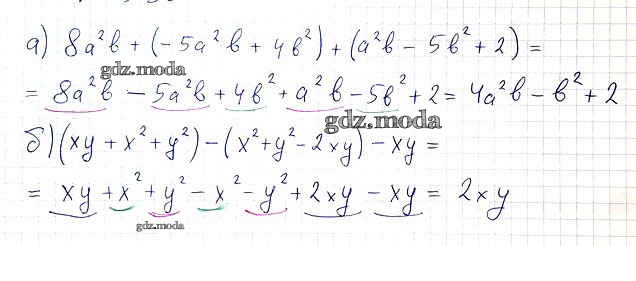 а) 8a²b + (-5a²b + 4b²) + (a²b - 5b² + 2) =
gdz.moda
= 8a²b - 5a²b + 4b² + a²b - 5b² + 2 = 4a²b - b² + 2
gdz.moda
б) (xy + x² + y²) - (x² + y² - 2xy) - xy =
= xy + x² + y² - x² - y² + 2xy - xy = 2xy
gdz.moda